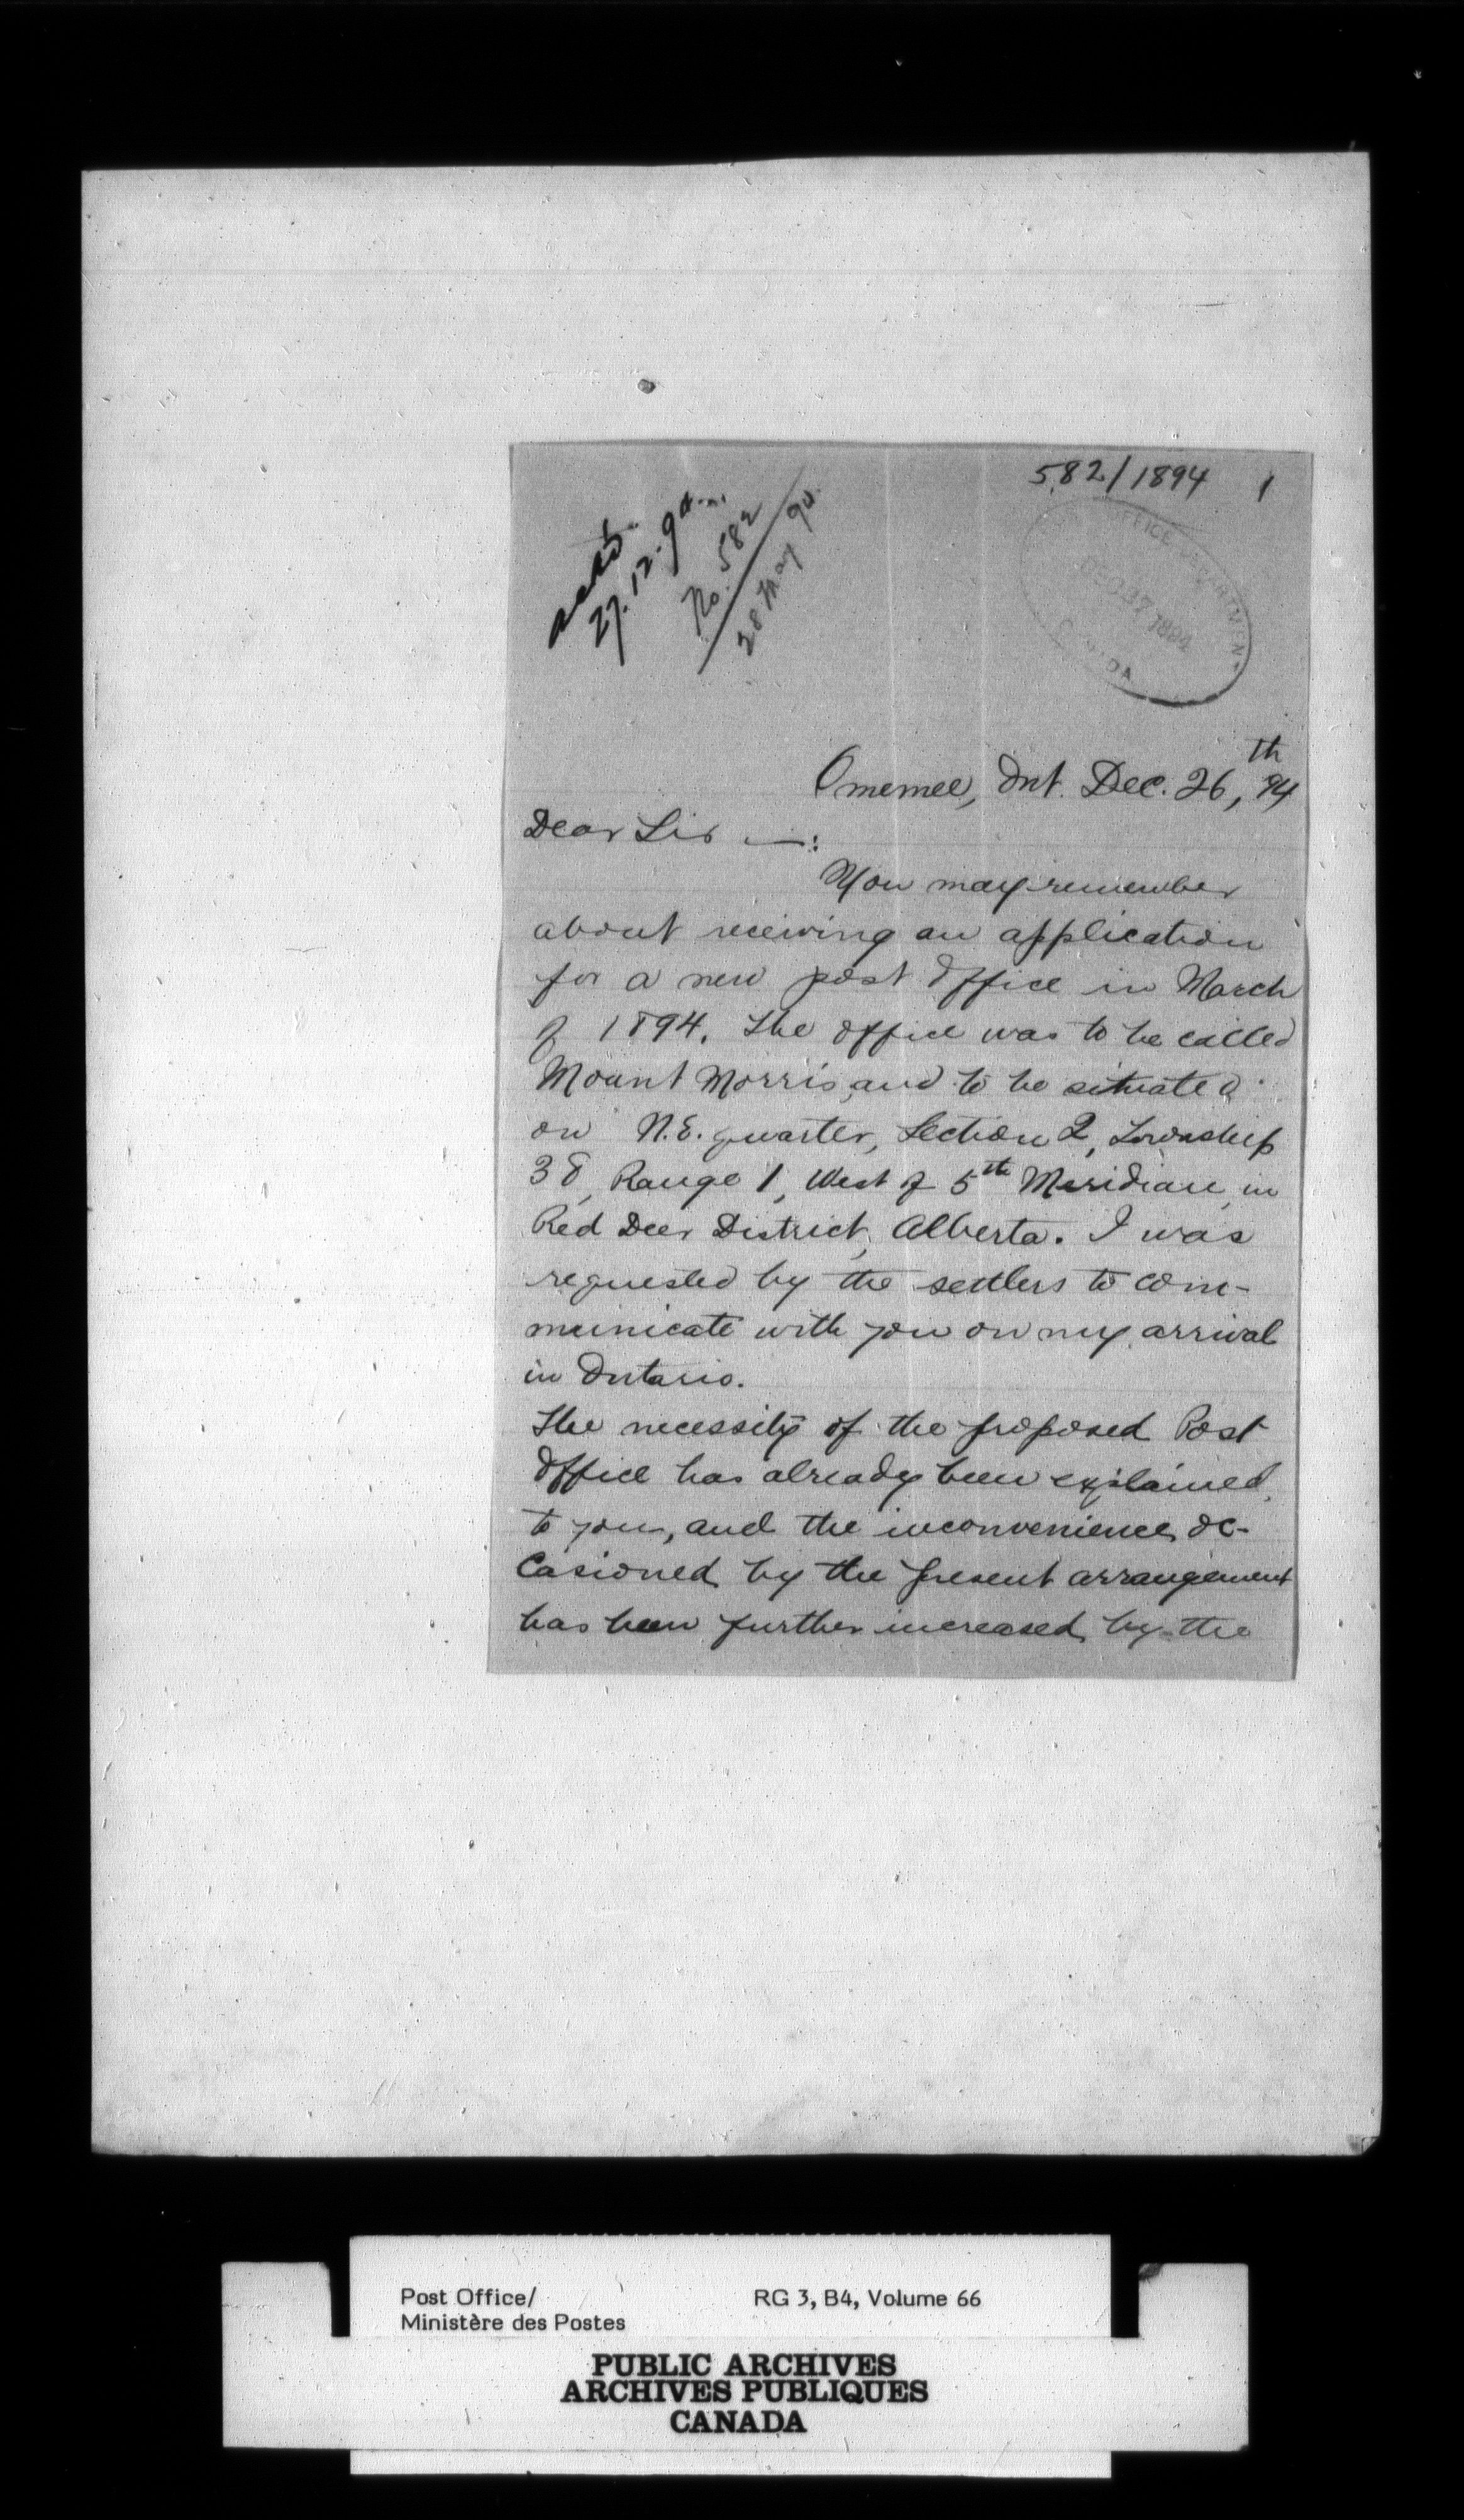 582/1894 1
ackd.
27.12.94.
No. 582
28 May 94.
OFFICE DEPARTMENT
DEC 27 1894
Omemee, Ont. Dec. 26th, 94
Dear Sir —:
You may remember
about receiving an application
for a new post office in March
of 1894. The office was to be called
Mount Morris, and to be situated
on N.E. quarter, Section 2, Township
38, Range 1, West of 5th Meridian, in
Red Deer District, Alberta. I was
requested by the settlers to com-
municate with you on my arrival
in Ontario.
The necessity of the proposed Post
Office has already been explained
to you, and the inconvenience oc-
casioned by the present arrangement
has been further increased by the
Post Office/ RG 3, B4, Volume 66
Ministère des Postes
PUBLIC ARCHIVES
ARCHIVES PUBLIQUES
CANADA